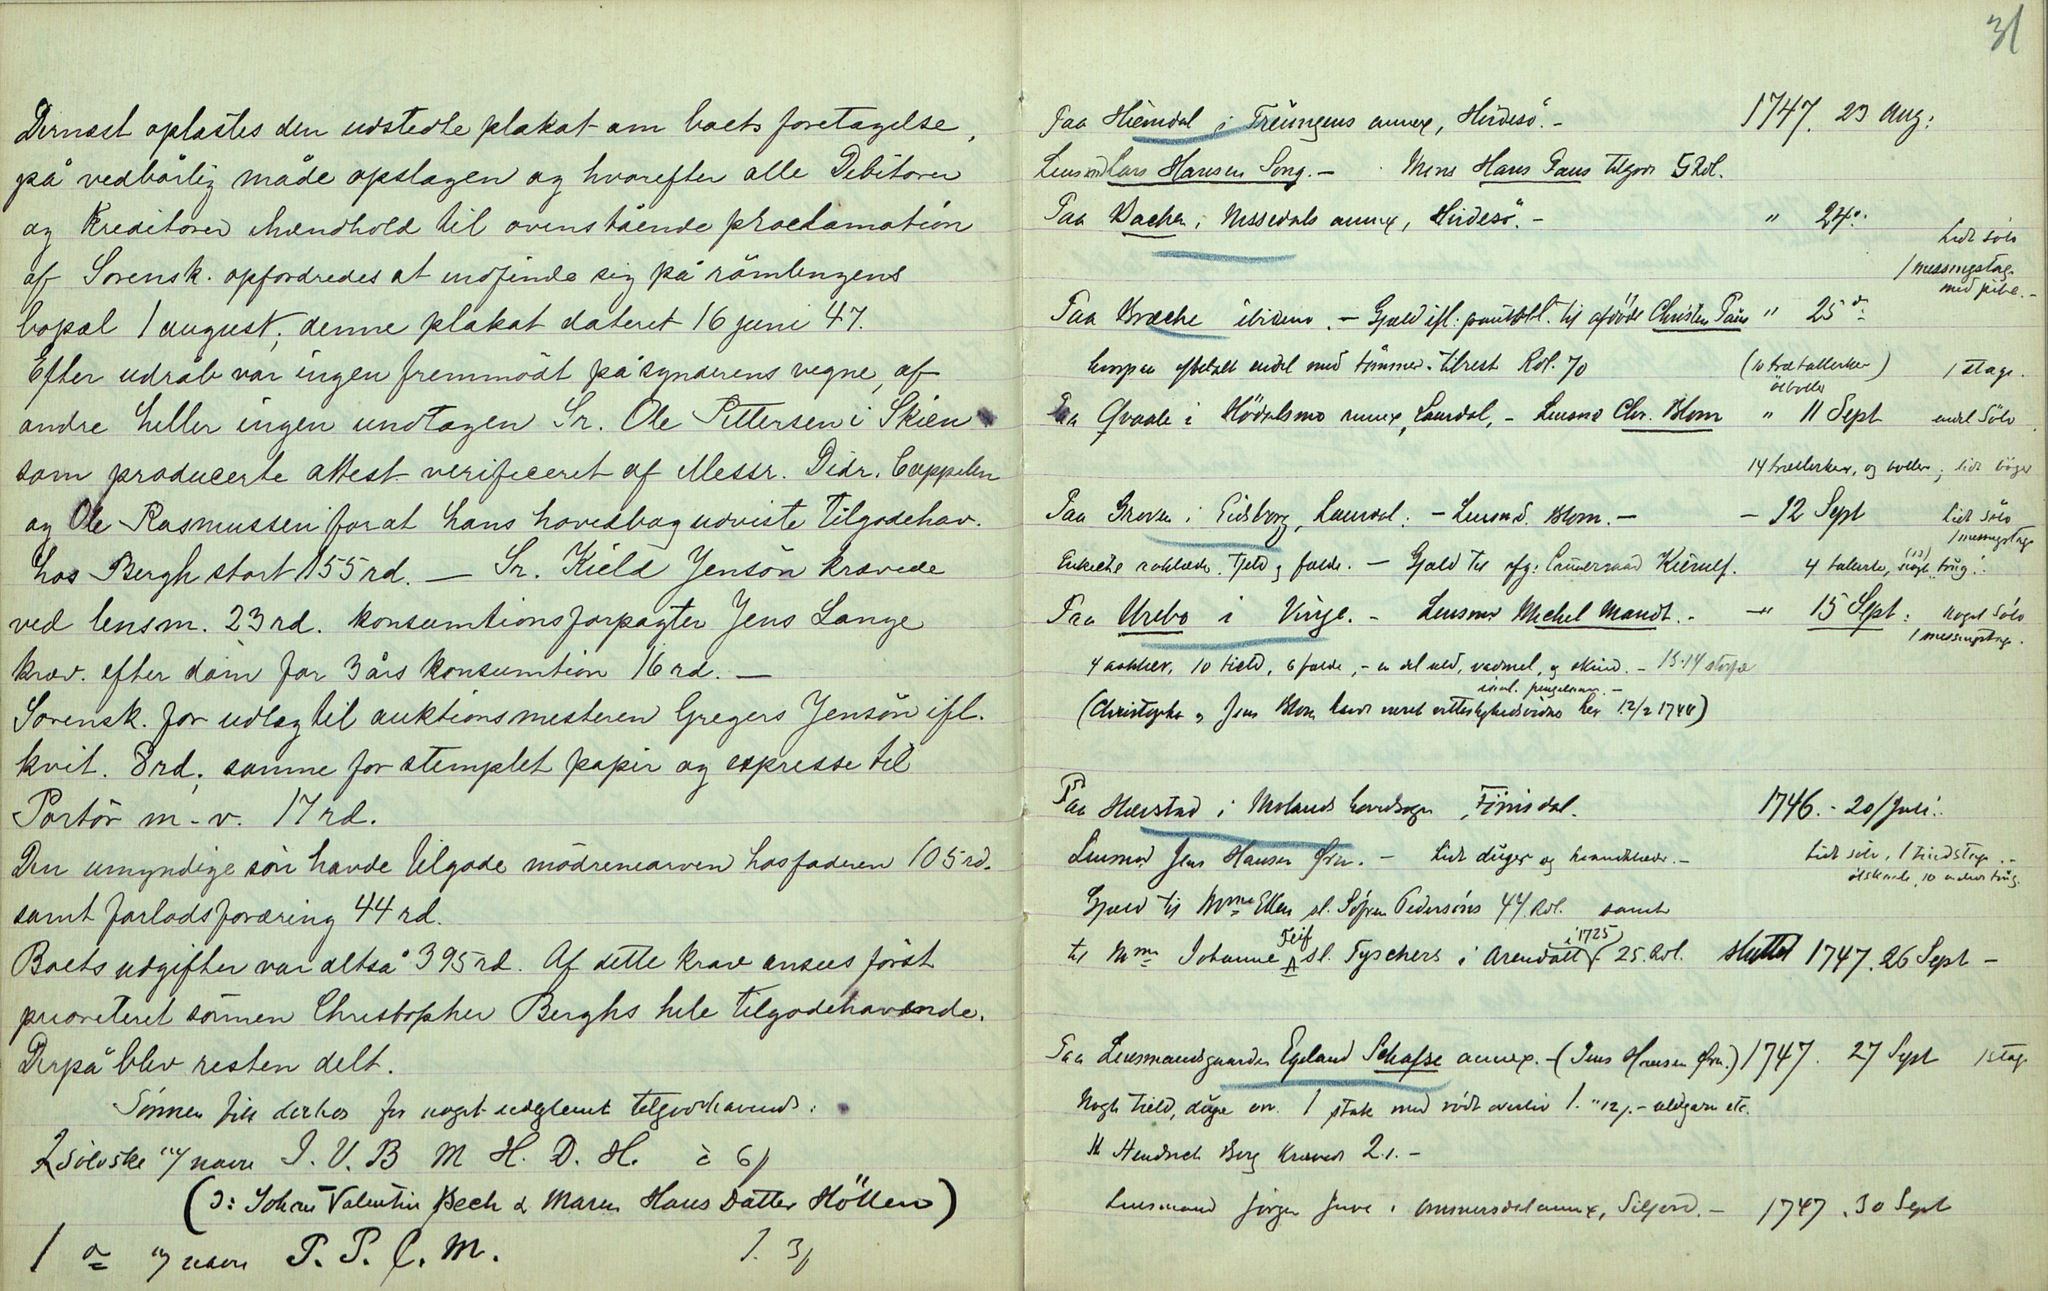 Dernæst oplæstes den udstedte plakat om boets foretagelse,
på vedbörlig måde opslagen og hvorefter alle Debitorer
og Kreditorer i hændhold til ovenstående proclamation
af Sorensk. opfordredes at indfinde sig på römlingens
bopæl 1 august, denne plakat dateret 16 juni 47.
Efter udråb var ingen fremmödt på synderens vegne, af
andre heller ingen undtagen Sr. Ole Pettersen i Skien
som producerte attest verificeret af Messr. Didr. Cappelen
og Ole Rasmussen for at hans hovedbog udviste Tilgodehav.
hos Bergh stort 155 rd. — Sr. Kield Jensön krævede
ved lensm. 23 rd. konsumtionsforpagter Jens Lange
kræv. efter dom for 3 års konsumtion 16 rd. —
Sorensk. for udlæg til auktionsmesteren Gregers Jensön ifl.
kvit. 8 rd, samme for stemplet papir og expresse til
Portör m-v. 17 rd.
Den umyndige sön havde tilgode mödrenearven hos faderen 105 rd.
samt forlodsforæring 44 rd.
Boets udgifter var altså 395 rd. Af dette krav ansees först
prioriteret sönnen Christopher Berghs hele tilgodehavende.
Derpå blev resten delt.
Sönnen fik derhos for noget tilgodehavende:
2 sölvske m/ navn I. V. B M H. D. H. à 6
(ɔ: Johan Valentin Bech & Maren Hans Datter Höllen)
1 do m/ navn P. P. C. M. 1. 3
31
Paa Hiemdal i Treungens annex, Hvidesö. — 1747. 23 Aug:
Lensmd Lars Hansen Song. — Mons Hans Paus tilgode 5 Rdl.
Paa Bachen i Nissedals annex, Hvidesö. — " 24.
Lidt sölv
1 messingstage
med pibe. —
Paa Bræche ibidem. — Gjæld ifl. pantobl. til afdöde Christen Paus " 25 do
hvorpaa afbetalt endel med tömmer. tilrest Rdl. 70 (10 trætallerker) 1 stage.
ölboller
Paa Qvaale i Höidalsmo annex, Laurdal, — Lensmd Chr. Blom " 11 Sept endel Sölv
14 tallerker, og boller, lidt böger
Paa Groven i Eidsborg, Laurdal: — Lensmd. Blom. — — 12 Sept Lidt sölv
1 messingstage
Tjeld og fælde. — Gjæld til afg: Kierulf. 4 tallerke, (12) trug:
Paa Urebo i Vinje. — Lensmd Michel Mandt. — —" 15 Sept: noget sölv
1 messingstage.
4 aaklær, 10 tield, 6 fælde, — en del uld, vadmel, og skind. — 13-14 storfæ
(Christopher og Jens Blom havde været her 12/2 1744)
Paa Haustad i Molands hovedsogn, Fiirisdal. 1746. — 20/Juli:
Lensmd Jens Hansen Örn. — Lidt duger og haandklæder. — Lidt sölv, 1 stage. —
10 trug.
Gjæld til Mme Ellen sl. Söfren Pedersöns 44 Rdl. samt
til Mme Johanne Feif sl. Tyschers i Arendall (i 1725) 25 Rdl. sluttet 1747. 26 Sept —
Paa Lensmandsgaarden Egeland Schafse annex. — (Jens Hansen Örn.) 1747. 27 Sept 1 stage
Nogle tield, duge m. 1 stak med rödt overliv 1. " 12/. — uldgarn etc.
Hr Hendrich Berg krævede 2. 1. —
Lensmand Jörgen Juve i Brunkebergs annex, Siljord. — 1747. 30 Sept